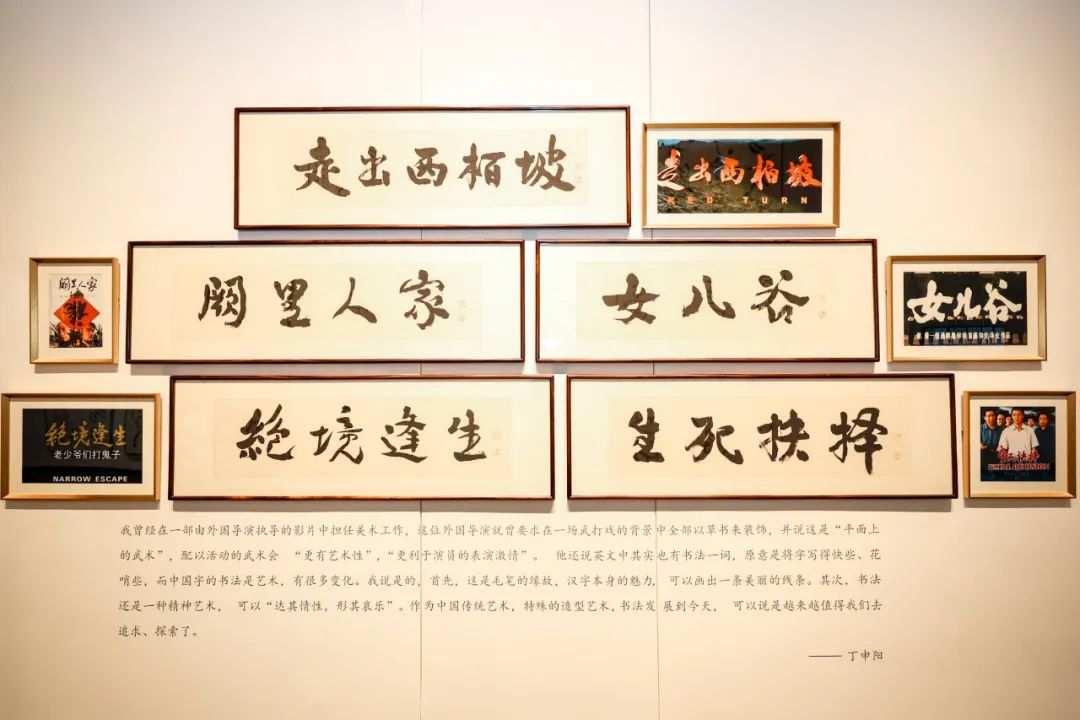 走出西柏坡
走出西柏坡
RED TURN
阙里人家
阙里人家
女儿谷
女儿谷
絶境逢生
老少爷们打鬼子
NARROW ESCAPE
絶境逢生
生死抉择
生死抉择
FATAL DECISION
我曾经在一部由外国导演执导的影片中担任美术工作，这位外国导演就曾要求在一场武打戏的背景中全部以草书来装饰，并说这是“平面上
的武术”，配以活动的武术会 “更有艺术性”，“更利于演员的表演激情”。 他还说英文中其实也有书法一词，原意是将字写得快些、花
哨些，而中国字的书法是艺术，有很多变化。我说是的，首先，这是毛笔的缘故，汉字本身的魅力， 可以画出一条美丽的线条。其次，书法
还是一种精神艺术， 可以“达其情性，形其哀乐”。作为中国传统艺术，特殊的造型艺术，书法发展到今天， 可以说是越来越值得我们去
追求、探索了。
—— 丁申阳